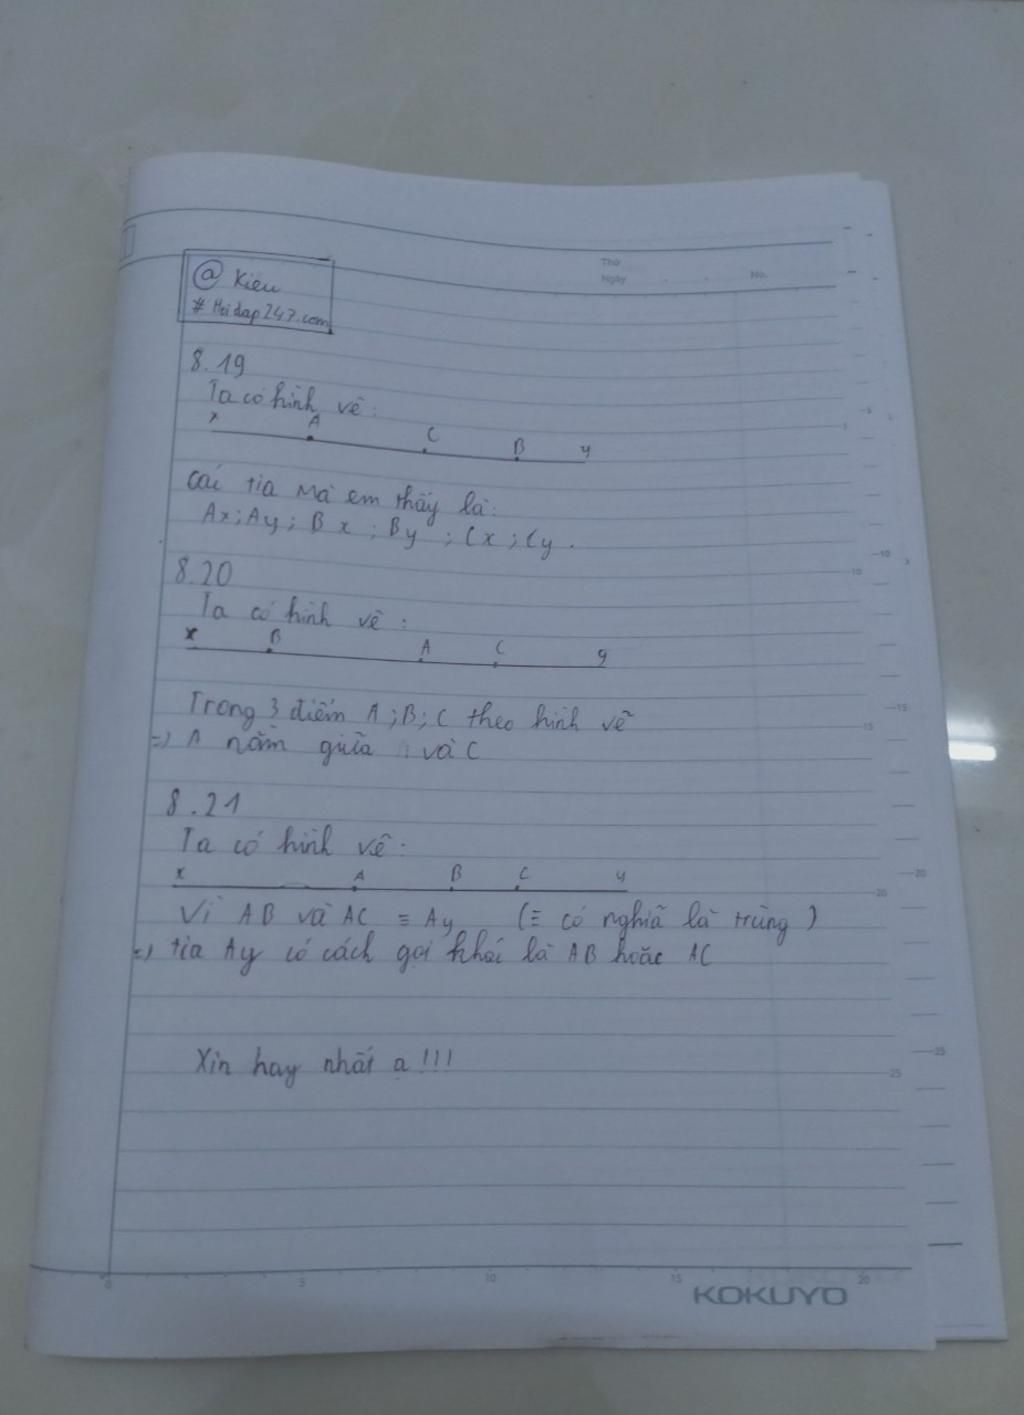 @ Kiều
# Hoidap247.com
Thứ
Ngày
No.
8.19
Ta có hình vẽ:
x A C B y
Các tia mà em thấy là:
Ax; Ay; Bx; By; Cx; Cy.
8.20
Ta có hình vẽ:
x B A C y
Trong 3 điểm A; B; C theo hình vẽ
=) A nằm giữa và C
8.21
Ta có hình vẽ:
x A B C y
Vì AB và AC ≡ Ay (≡ có nghĩa là trùng)
=) tia Ay có cách gọi khác là AB hoặc AC
Xin hay nhất ạ!!!
0 5 10 15 20
KOKUYO